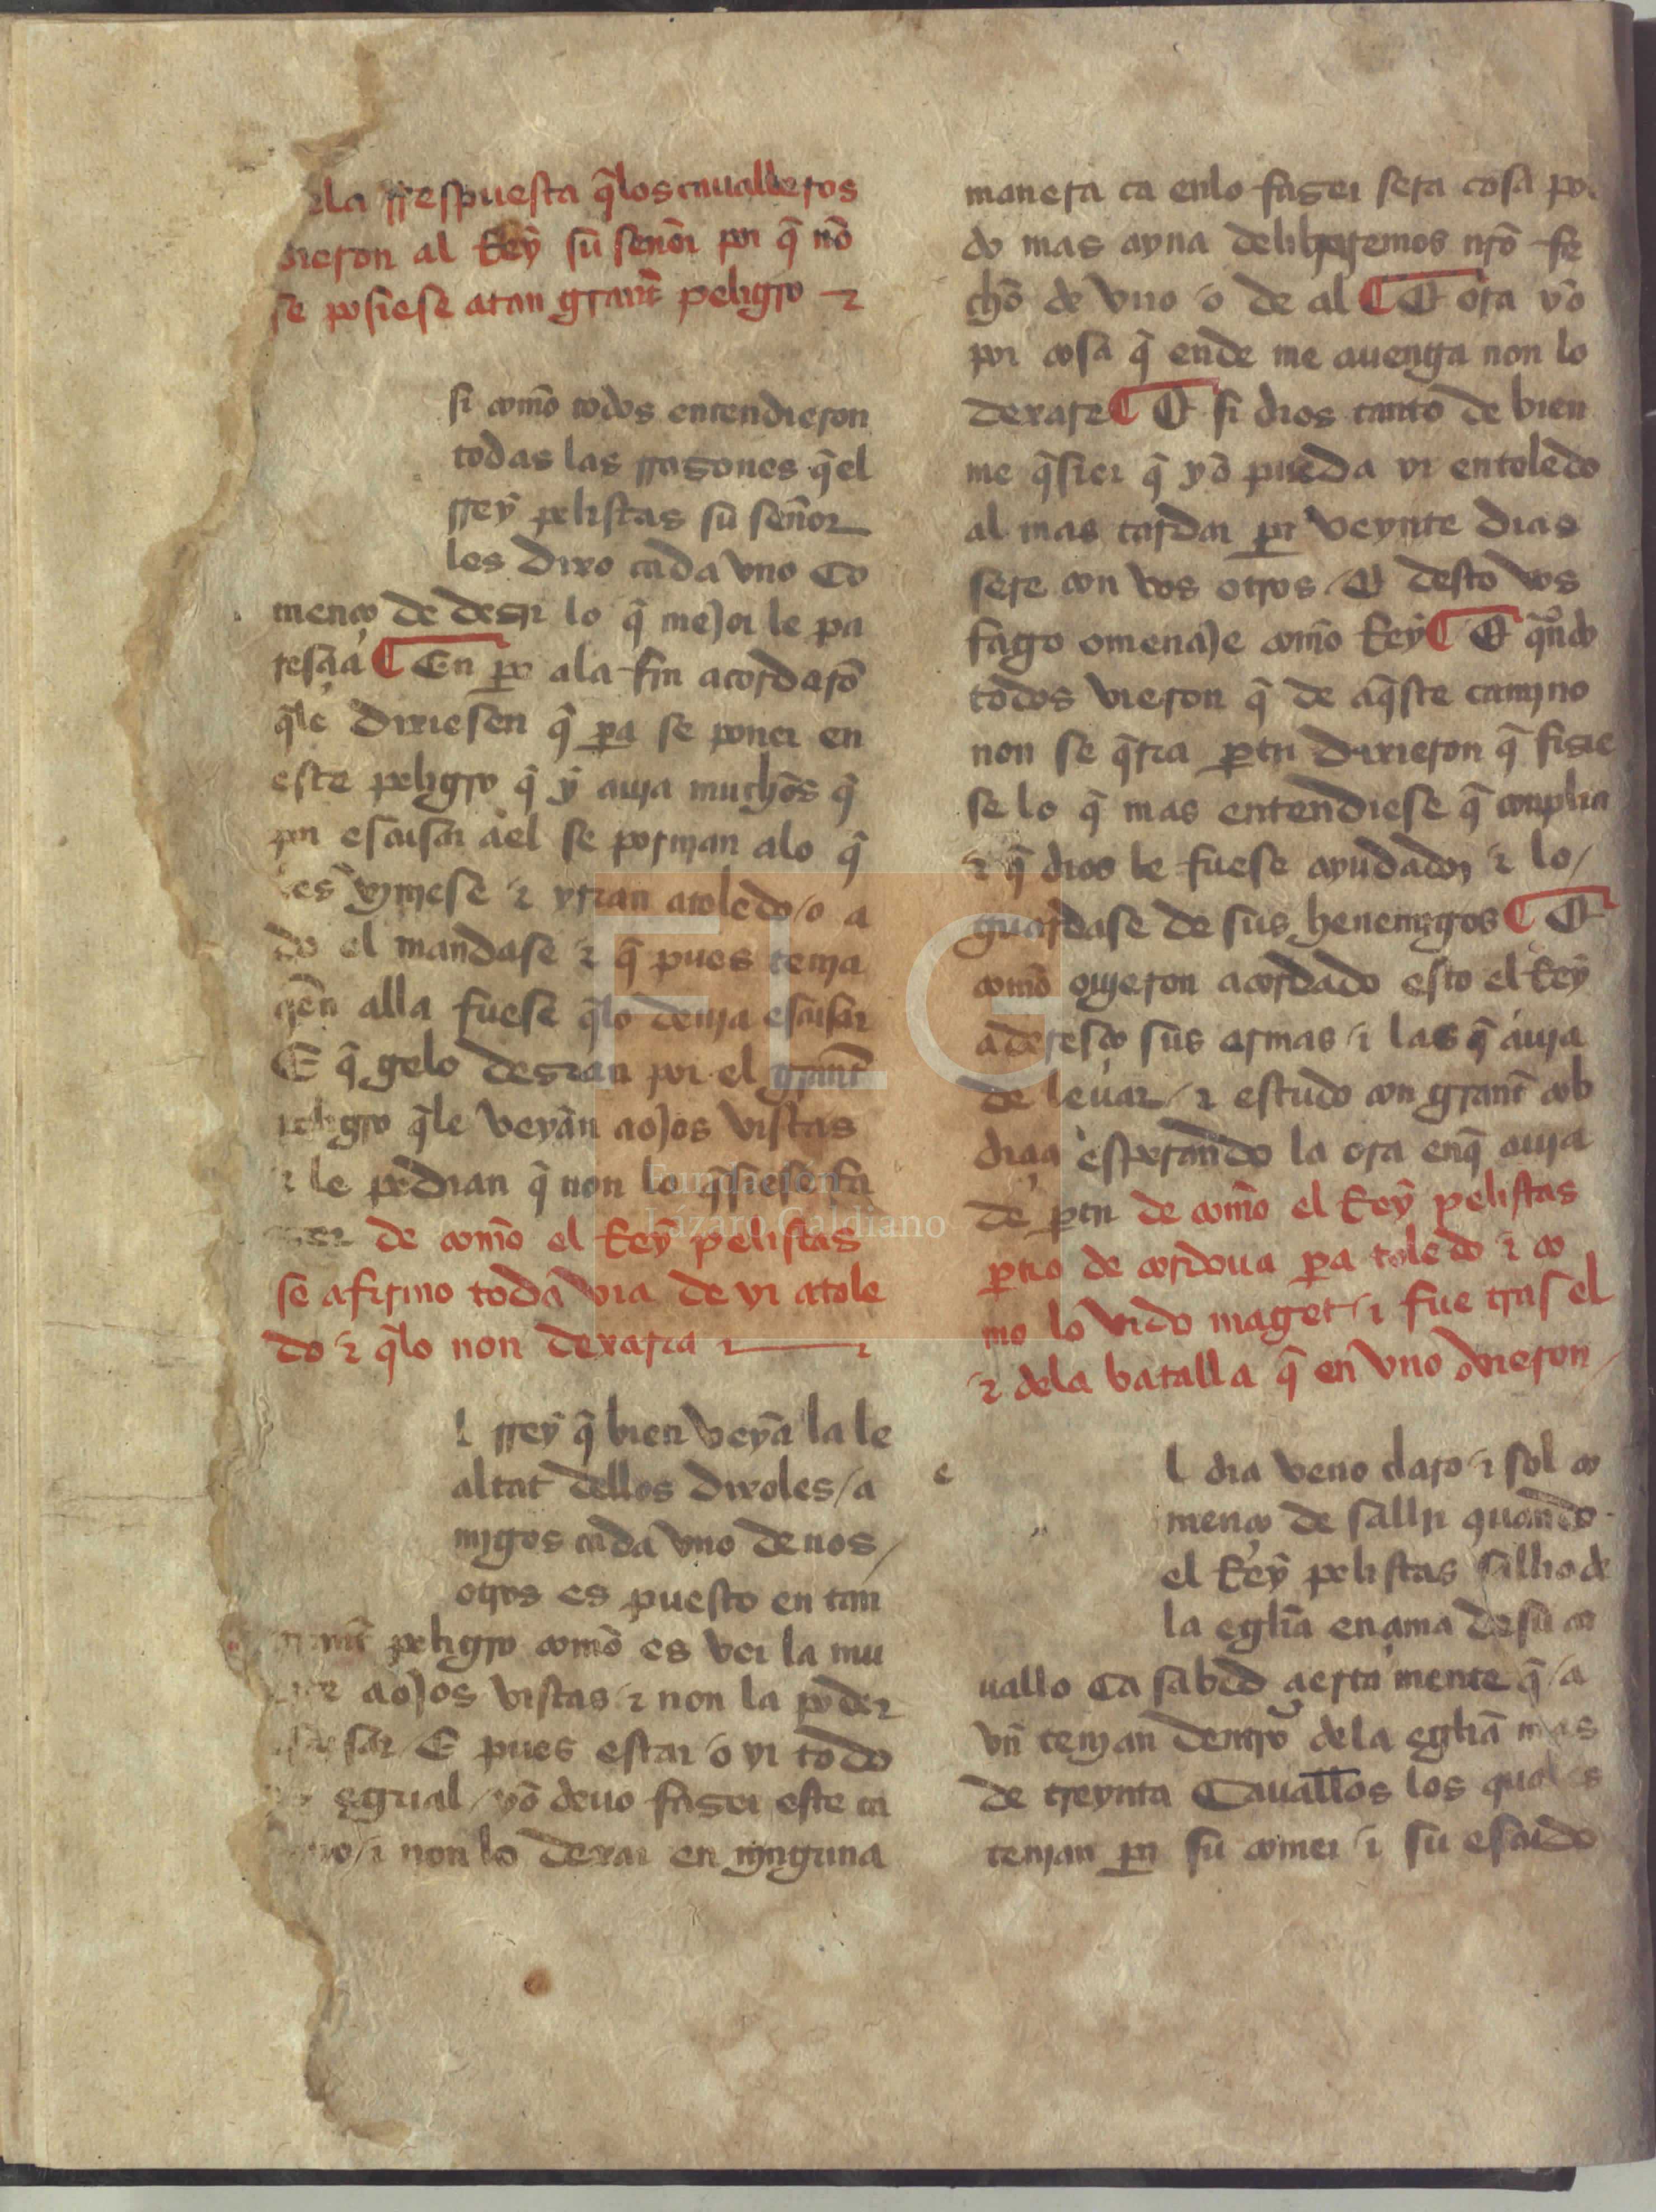 ela rrespuesta q̃los caualleros
dieron al Rey su señor por q̃ nõ
se posiese atan grant̃ peligro ⁊
si com̃o todos entendieron
todas las rrazones q̃el
rrey pelistas su señor
les dixo cada vno co
menço de dezir lo q̃ mejor le pa
resçia ¶ En ꝑo ala fin acordarõ
q̃le dixiesen q̃ ꝑa se poner en
este peligro q̃ y auja muchos q̃
por escusar ael se pornjan alo q̃
les vjnjese ⁊ yrian atoledo / o a
do el mandase ⁊ q̃ pues tenja
q̃en alla fuese q̃lo deuja escusar
E q̃ gelo dezian por el grant̃
peligro q̃le veyan aojos vistas
⁊ le pedian q̃ non lo q̃siese fa
zer de com̃o el Rey pelistas
se afirmo toda via de yr atole
do ⁊ q̃lo non dexaria ⁊
l rrey q̃ bien veya la le
altat dellos dixoles / a
mjgos cada vno de uos /
otros es puesto en tan
grant̃ peligro com̃o es ver la mu
erte aojos vistas ⁊ non la poder
escusar E pues estar / o yr todo
es egual / yo deuo fazer este ca
mjno / ⁊ non lo dexar en njnguna
manera ca enlo fazer sera cosa por
do mas ayna deliberemos nr̃o fe
cho de vno / o de al ¶ E ora yo
por cosa q̃ ende me auenga non lo
dexare ¶ E si dios tanto de bien
me q̃sier q̃ yo pueda yr entoledo
al mas tardar ꝑ veynte dias
sere con vos otros / E desto vos
fago omenaje com̃o Rey ¶ E qñdo
todos vieron q̃ de aq̃ste camjno
non se q̃ria ꝑtir dixieron q̃ fizie
se lo q̃ mas entendiese q̃ conplia
⁊ q̃ dios le fuese ayudador ⁊ lo /
guardase de sus henemjgos ¶ E
com̃o oujeron acordado esto el Rey
adresço sus armas / ⁊ las q̃ auja
de leuar / ⁊ estudo con grant̃ cob
diçia esperando la ora enq̃ auja
de ꝑtir de com̃o el Rey pelistas
ꝑtio de cordoua ꝑa toledo ⁊ co
mo lo vido maget / ⁊ fue tras el
⁊ dela batalla q̃ en vno ovieron /
e l dia veno claro / ⁊ sol co
menço de sallir quando
el Rey pelistas sallio de
la eglia ençima de su ca
uallo Ca sabed çiertamente q̃ / a
vn̄ tenjan dentro dela eglia mas
de treynta Cauallos los quales
tenjan ꝑa su comer / ⁊ su escudo